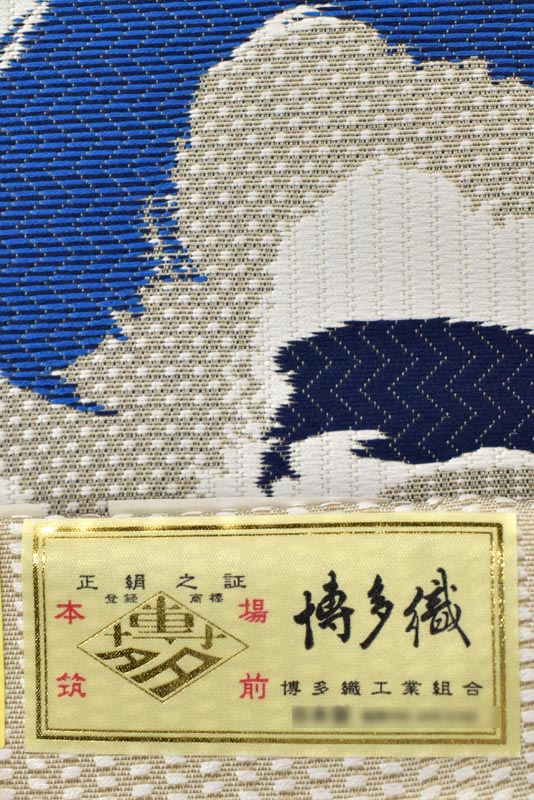 正絹之証
登録 商標
本 場
博多
筑 前
博多織
博多織工業組合